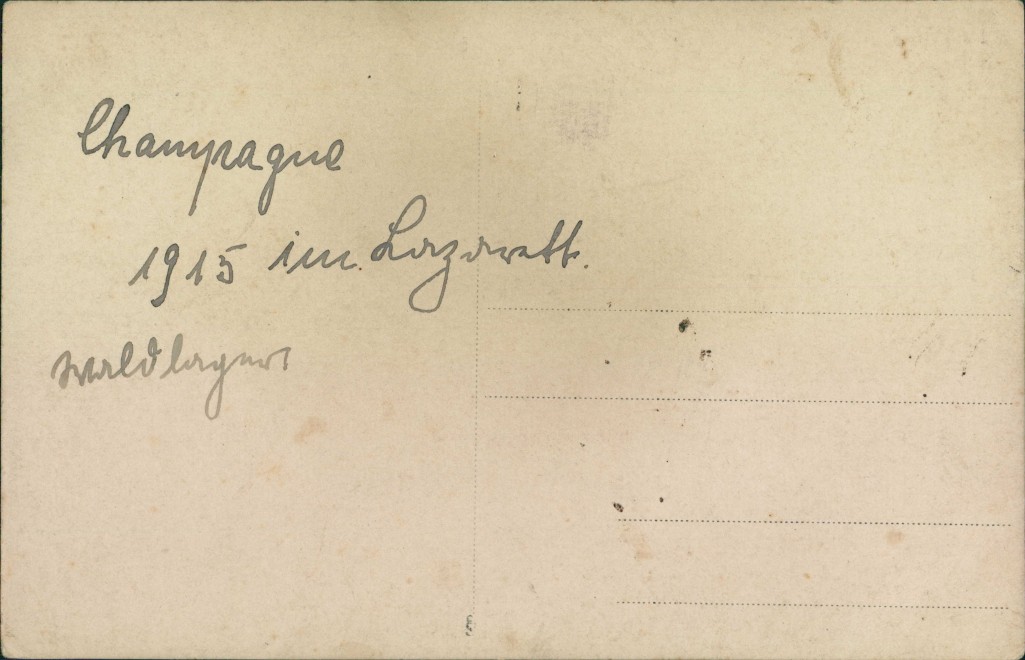 Champagne
1915 im Lazarett.
Waldlager